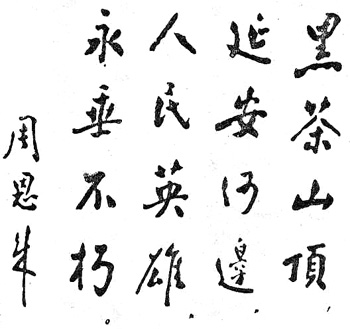 黑茶山頂，
延安河邊，
人民英雄，
永垂不朽。
周恩来